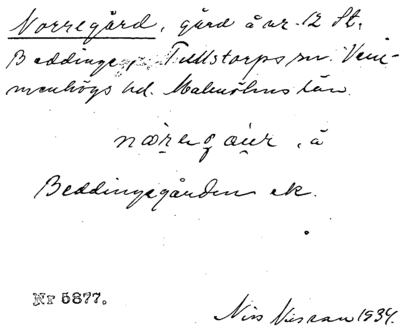 Norregård, gård å nr. 12 St.
Beddinge, Tullstorps sn. Vem-
menhögs hd. Malmöhus län.
nọ̀rega̤ur, å
Beddingegården ek.
Nr 5877.
Nils 1934.